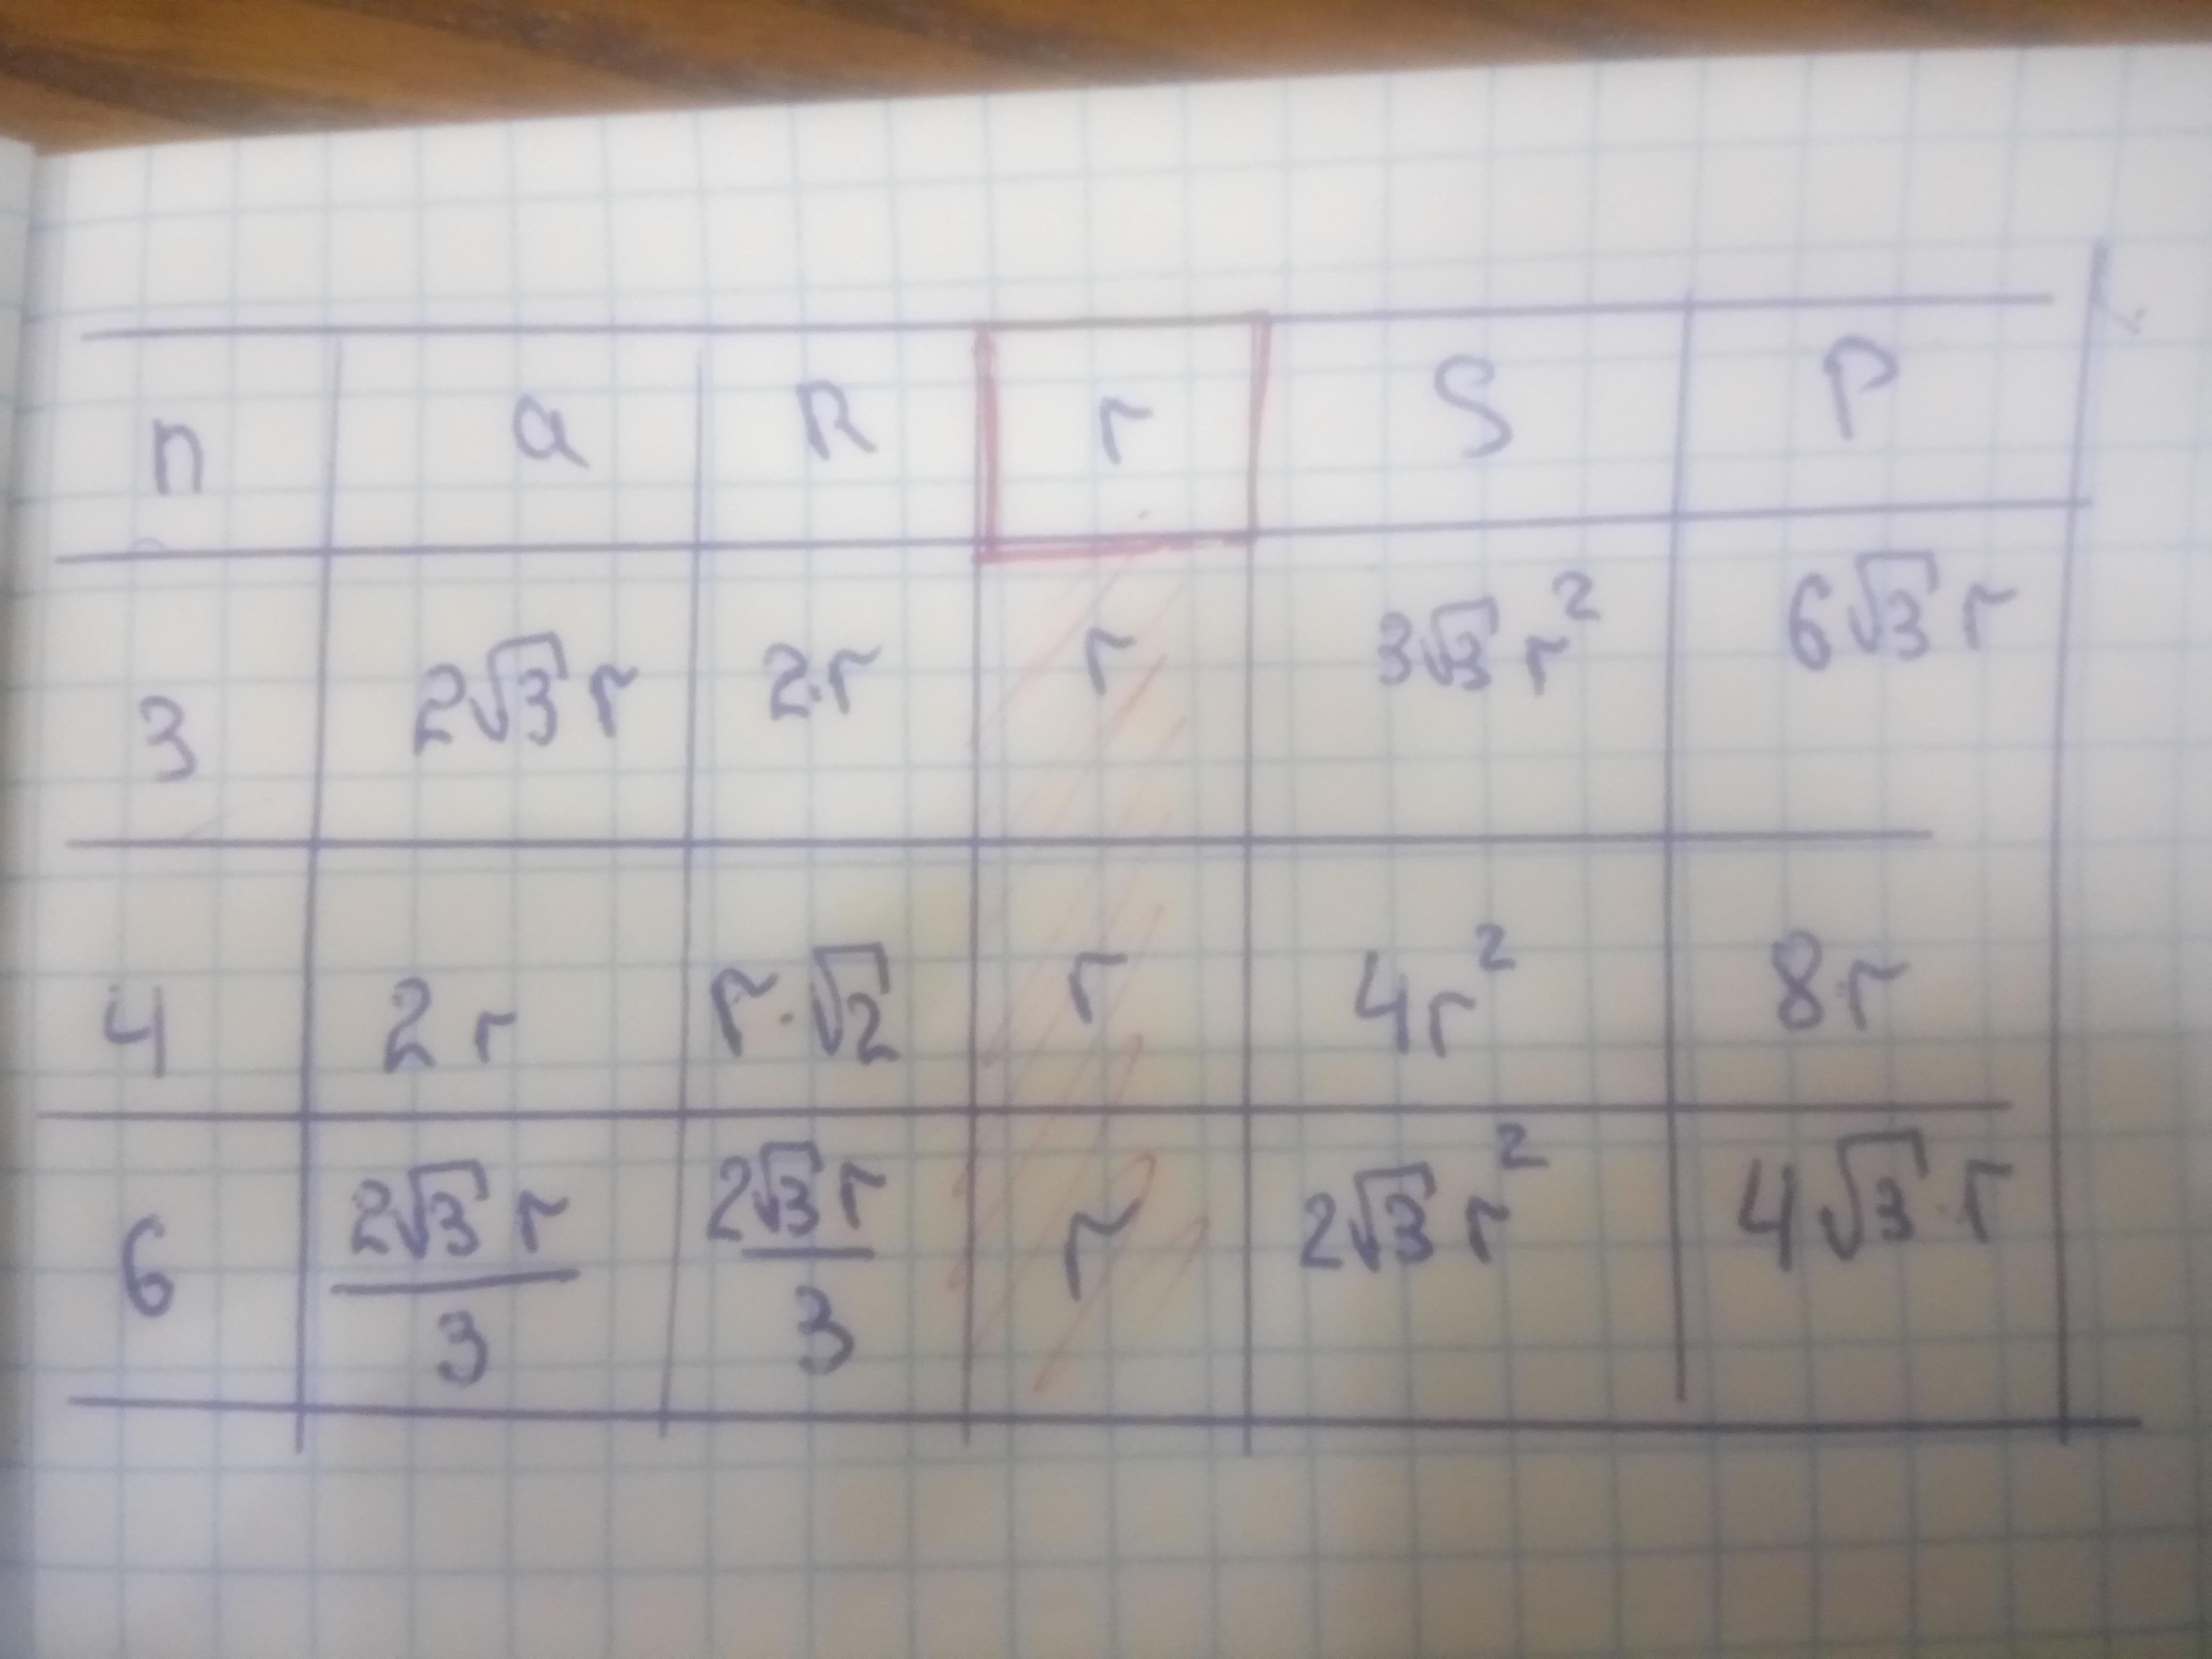 n a R r S P
3 2√3 r 2·r r 3√3 r² 6√3 r
4 2r r·√2 r 4r² 8r
6 2√3 r/3 2√3 r/3 r 2√3 r² 4√3·r